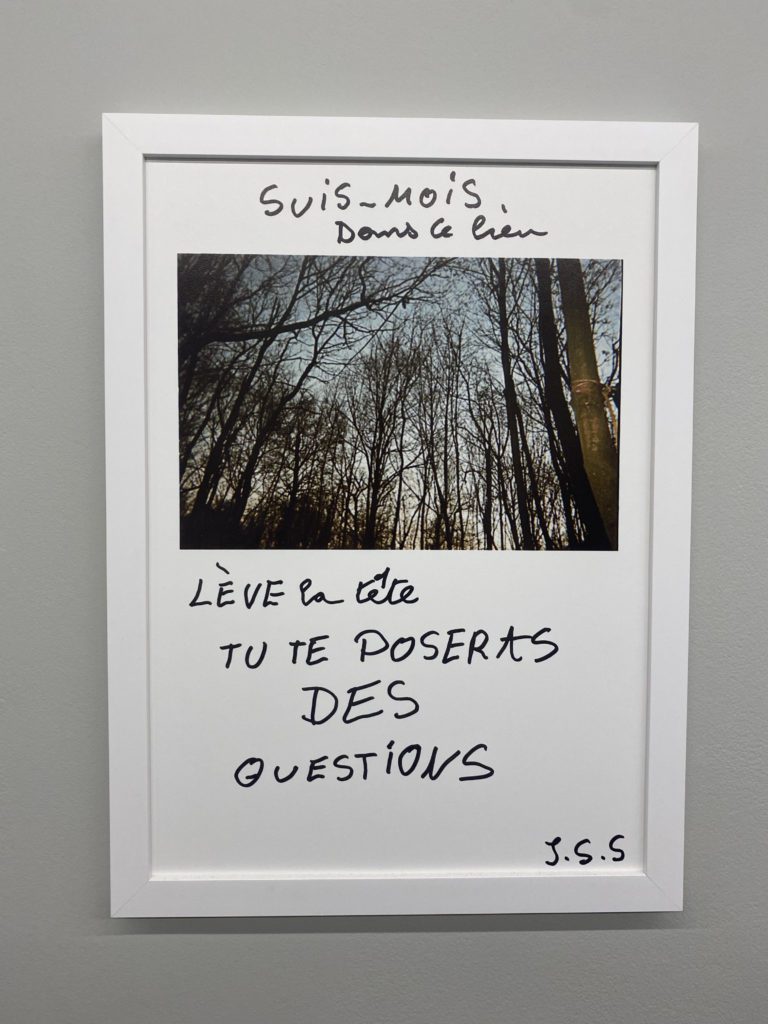 SUIS-MOIS.
Dans ce lieu
LÈVE la tête
TU TE POSERAS
DES
QUESTIONS
J.S.S